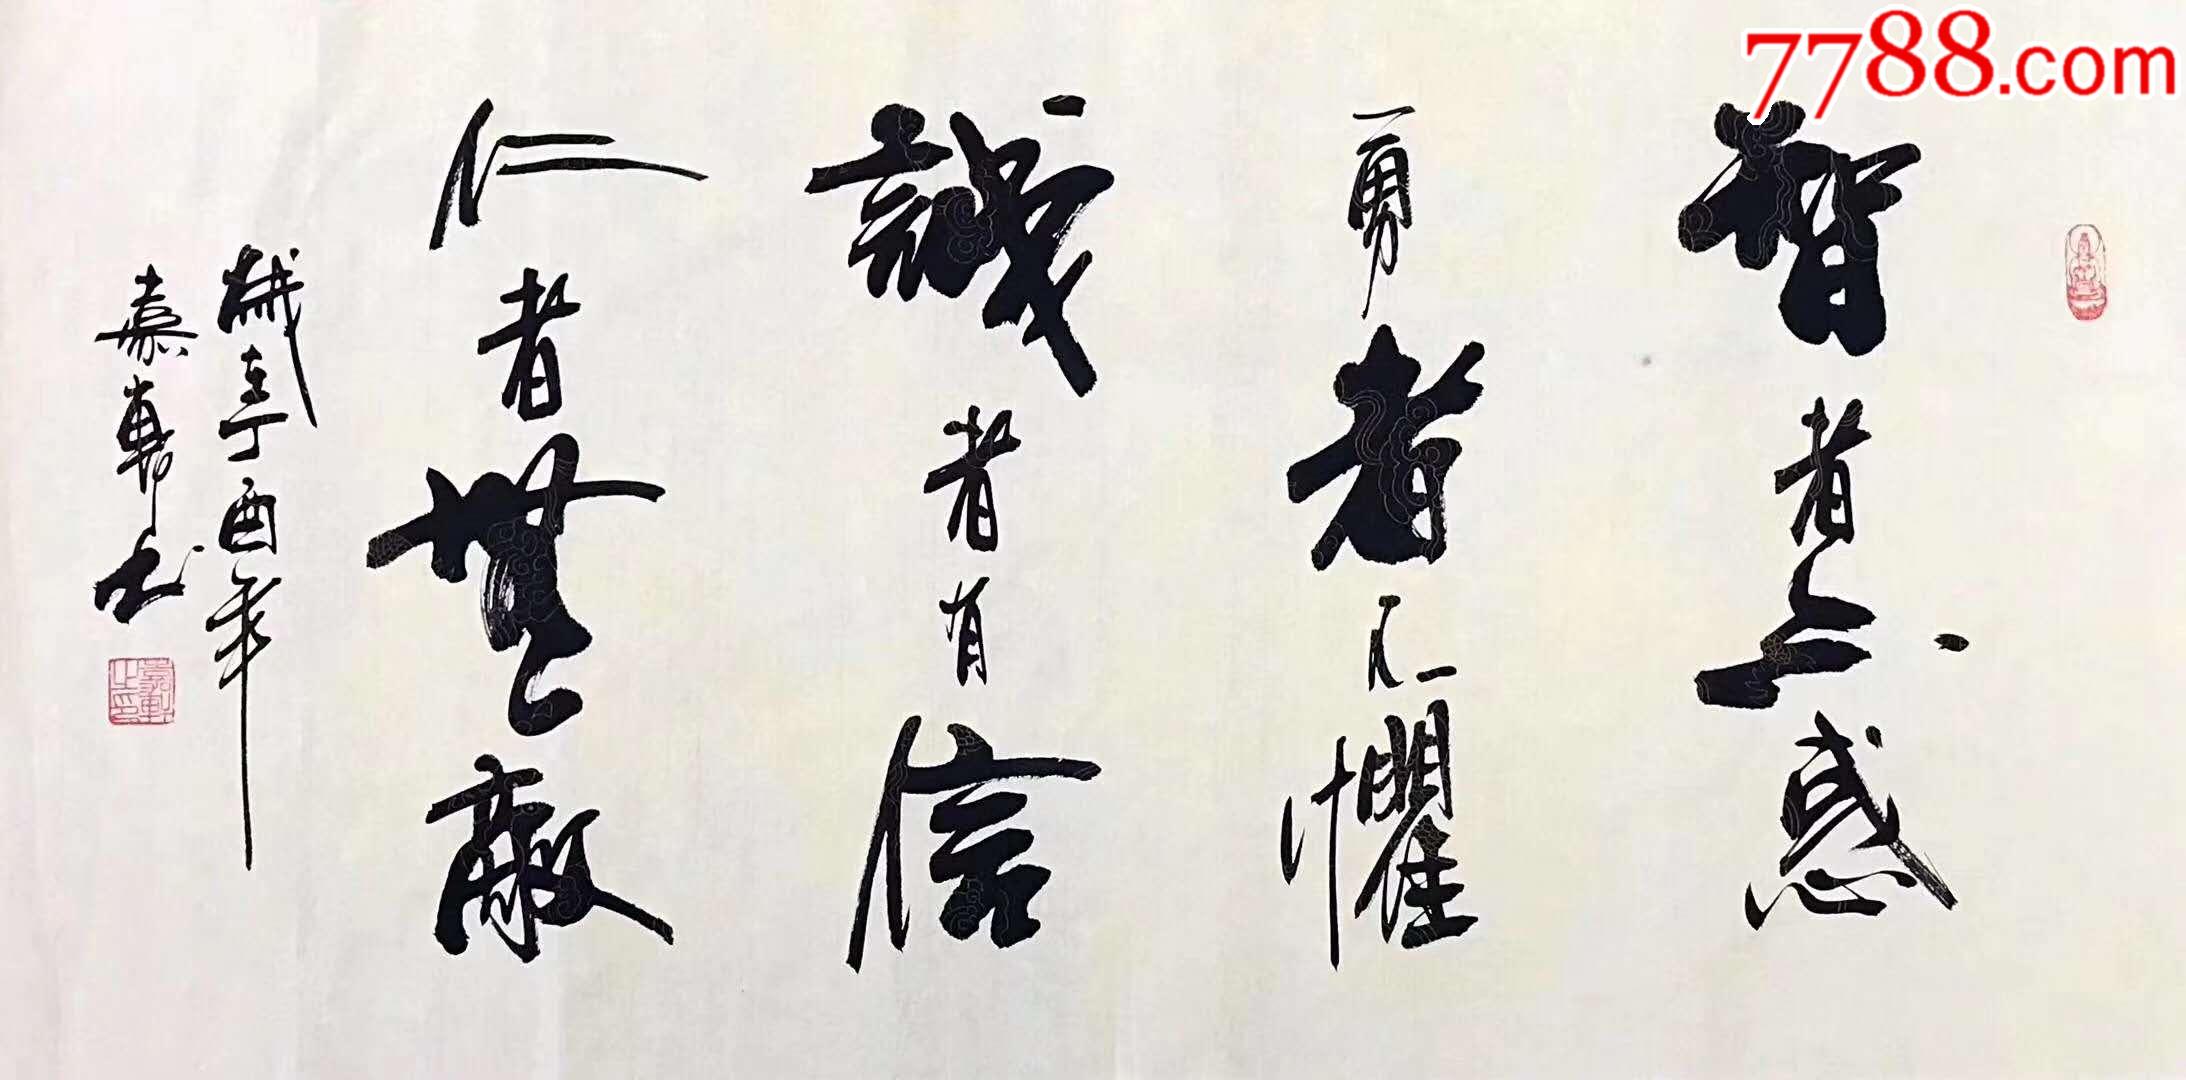 7788.com
智者不惑
勇者不懼
誠者有信
仁者無敵
歲在丁酉年
嘉軒书